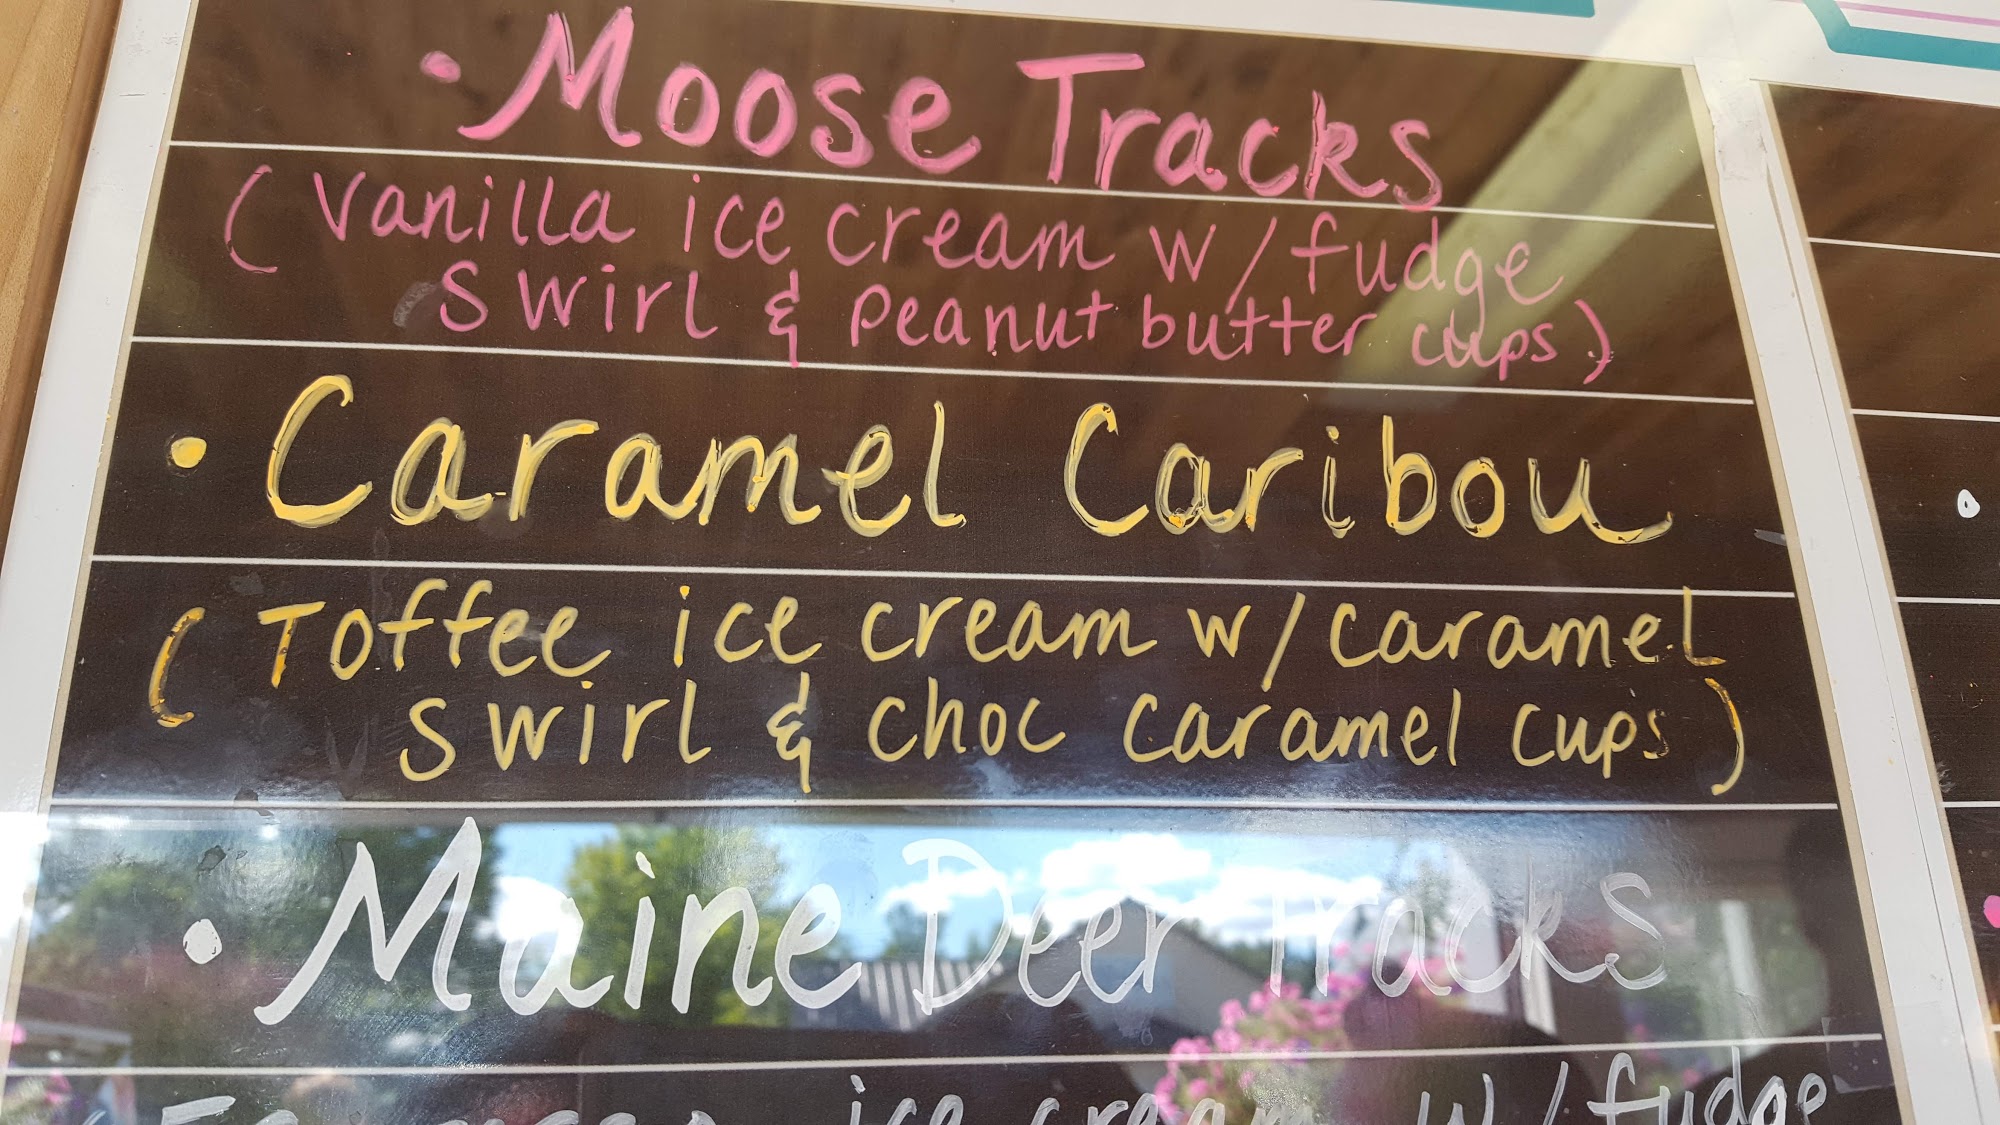 • Moose Tracks
( Vanilla ice cream w/fudge
swirl & peanut butter cups )
• Caramel Caribou
( Toffee ice cream w/caramel
swirl & choc caramel cups )
• Maine Deer Tracks
ice cream w/fudge